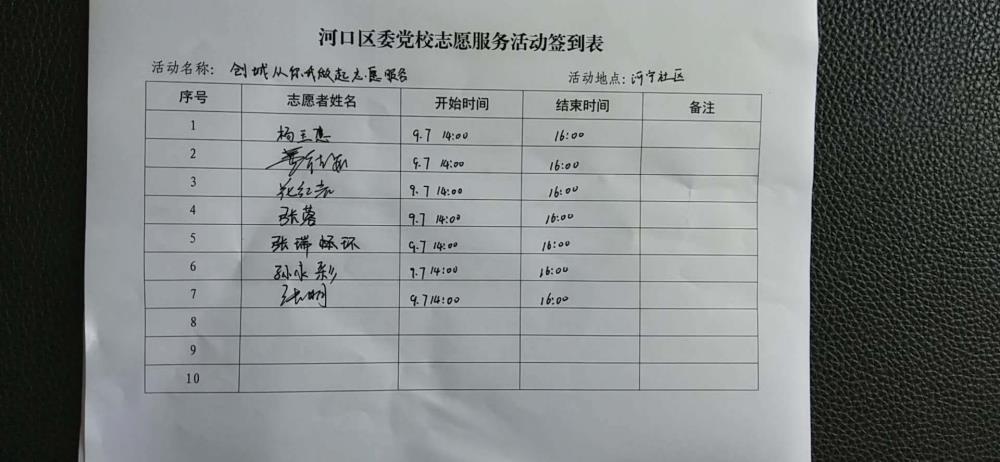 河口区委党校志愿服务活动签到表
活动名称： 创城从你我做起志愿服务 活动地点：河宁社区
序号 志愿者姓名 开始时间 结束时间 备注
1 9.7 14:00 16:00
2 9.7 14:00 16:00
3 9.7 14:00 16:00
4 张蓉 9.7 14:00 16:00
5 张瑞环 9.7 14:00 16:00
6 孙永彩 9.7 14:00 16:00
7 张明 9.7 14:00 16:00
8
9
10